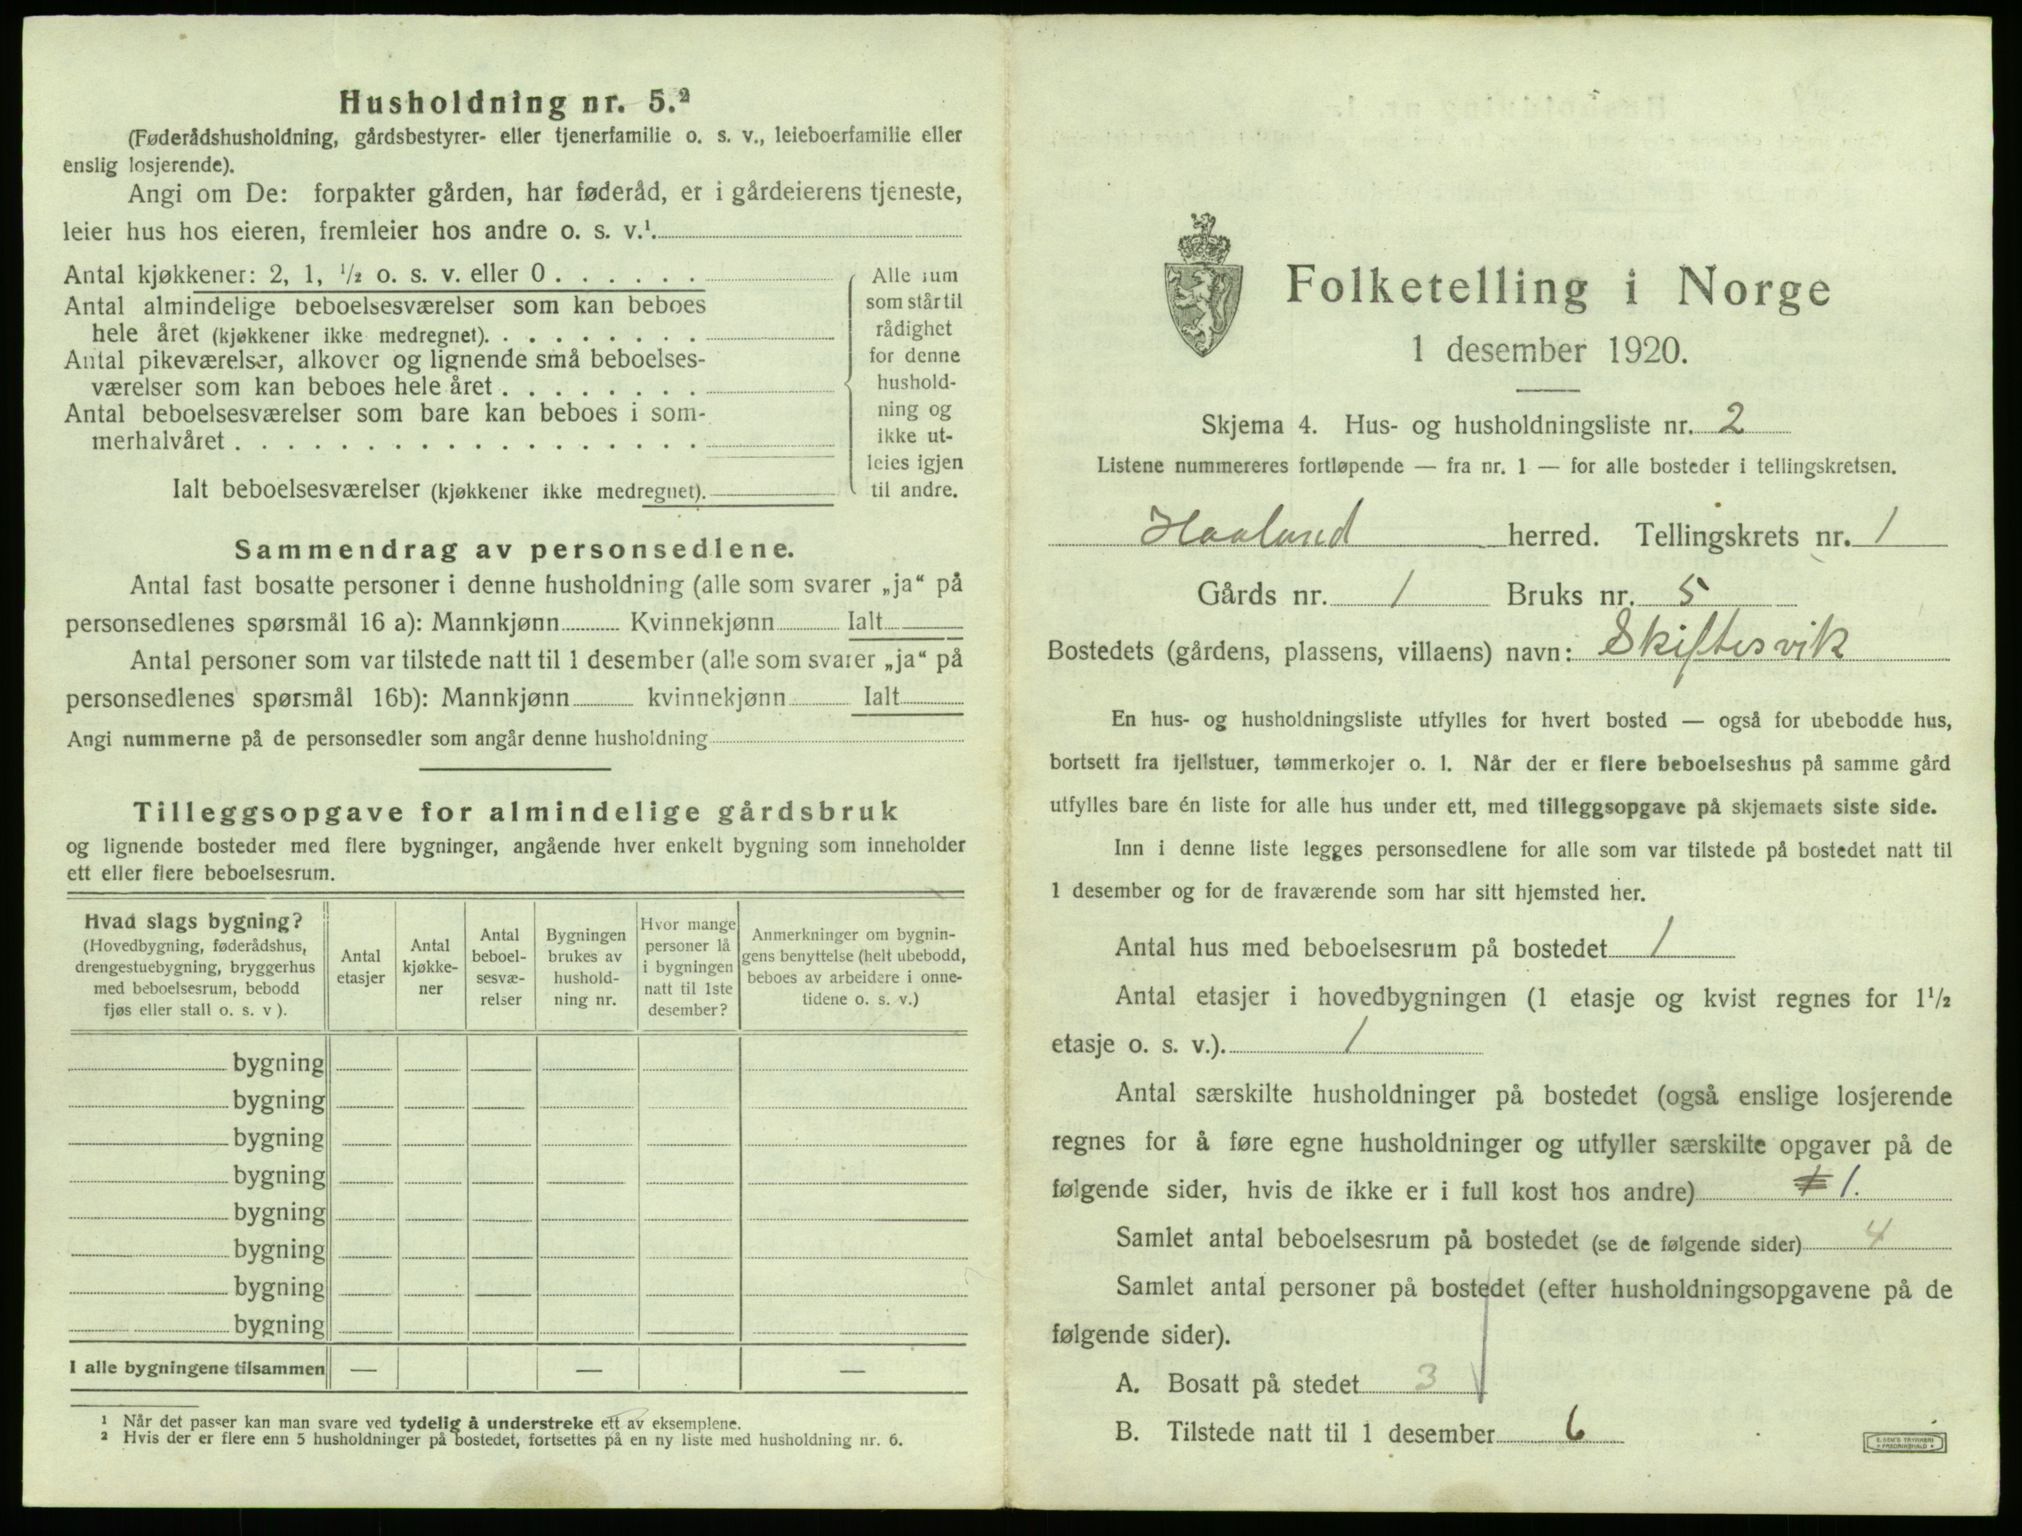 Husholdning nr. 5.²
(Føderådshusholdning, gårdsbestyrer- eller tjenerfamilie o. s. v., leieboerfamilie eller
enslig losjerende).
Angi om De: forpakter gården, har føderåd, er i gårdeierens tjeneste,
leier hus hos eieren, fremleier hos andre o. s. v.¹
Antal kjøkkener: 2, 1, ½ o. s. v. eller 0 . . . . . .
Antal almindelige beboelsesværelser som kan beboes
hele året (kjøkkener ikke medregnet). . . . . . . . .
Antal pikeværelser, alkover og lignende små beboelses-
værelser som kan beboes hele året . . . . . . . .
Antal beboelsesværelser som bare kan beboes i som-
merhalvåret . . . . . . . . . . . . . . . . . .
Ialt beboelsesværelser (kjøkkener ikke medregnet).
Alle rum
som står til
rådighet
for denne
hushold-
ning og
ikke ut-
leies igjen
til andre.
Sammendrag av personsedlene.
Antal fast bosatte personer i denne husholdning (alle som svarer „ja“ på
personsedlenes spørsmål 16 a): Mannkjønn Kvinnekjønn Ialt
Antal personer som var tilstede natt til 1 desember (alle som svarer „ja“ på
personsedlenes spørsmål 16b): Mannkjønn kvinnekjønn Ialt
Angi nummerne på de personsedler som angår denne husholdning
Tilleggsopgave for almindelige gårdsbruk
og lignende bosteder med flere bygninger, angående hver enkelt bygning som inneholder
ett eller flere beboelsesrum.
Hvad slags bygning?
(Hovedbygning, føderådshus,
drengestuebygning, bryggerhus
med beboelsesrum, bebodd
fjøs eller stall o. s. v ).
Antal
etasjer
Antal
kjøkke-
ner
Antal
beboel-
sesvæ-
relser
Bygningen
brukes av
hushold-
ning nr.
Hvor mange
personer lå
i bygningen
natt til 1ste
desember?
Anmerkninger om bygnin-
gens benyttelse (helt ubebodd,
beboes av arbeidere i onne-
tidene o. s. v.)
bygning
bygning
bygning
bygning
bygning
bygning
bygning
bygning
I alle bygningene tilsammen — — —
¹ Når det passer kan man svare ved tydelig å understreke ett av eksemplene.
² Hvis der er flere enn 5 husholdninger på bostedet, fortsettes på en ny liste med husholdning nr. 6.
Folketelling i Norge
1 desember 1920.
Skjema 4. Hus- og husholdningsliste nr. 2
Listene nummereres fortløpende — fra nr. 1 — for alle bosteder i tellingskretsen.
Haaland herred. Tellingskrets nr. 1
Gårds nr. 1 Bruks nr. 5
Bostedets (gårdens, plassens, villaens) navn: Skiftesvik
En hus- og husholdningsliste utfylles for hvert bosted — også for ubebodde hus,
bortsett fra fjellstuer, tømmerkojer o. l. Når der er flere beboelseshus på samme gård
utfylles bare én liste for alle hus under ett, med tilleggsopgave på skjemaets siste side.
Inn i denne liste legges personsedlene for alle som var tilstede på bostedet natt til
1 desember og for de fraværende som har sitt hjemsted her.
Antal hus med beboelsesrum på bostedet 1
Antal etasjer i hovedbygningen (1 etasje og kvist regnes for 1½
etasje o. s. v.). 1
Antal særskilte husholdninger på bostedet (også enslige losjerende
regnes for å føre egne husholdninger og utfyller særskilte opgaver på de
følgende sider, hvis de ikke er i full kost hos andre) 1.
Samlet antal beboelsesrum på bostedet (se de følgende sider) 4
Samlet antal personer på bostedet (efter husholdningsopgavene på de
følgende sider).
A. Bosatt på stedet 3
B. Tilstede natt til 1 desember 6
E. SEM'S TRYKKERI
FREDRIKSHALD